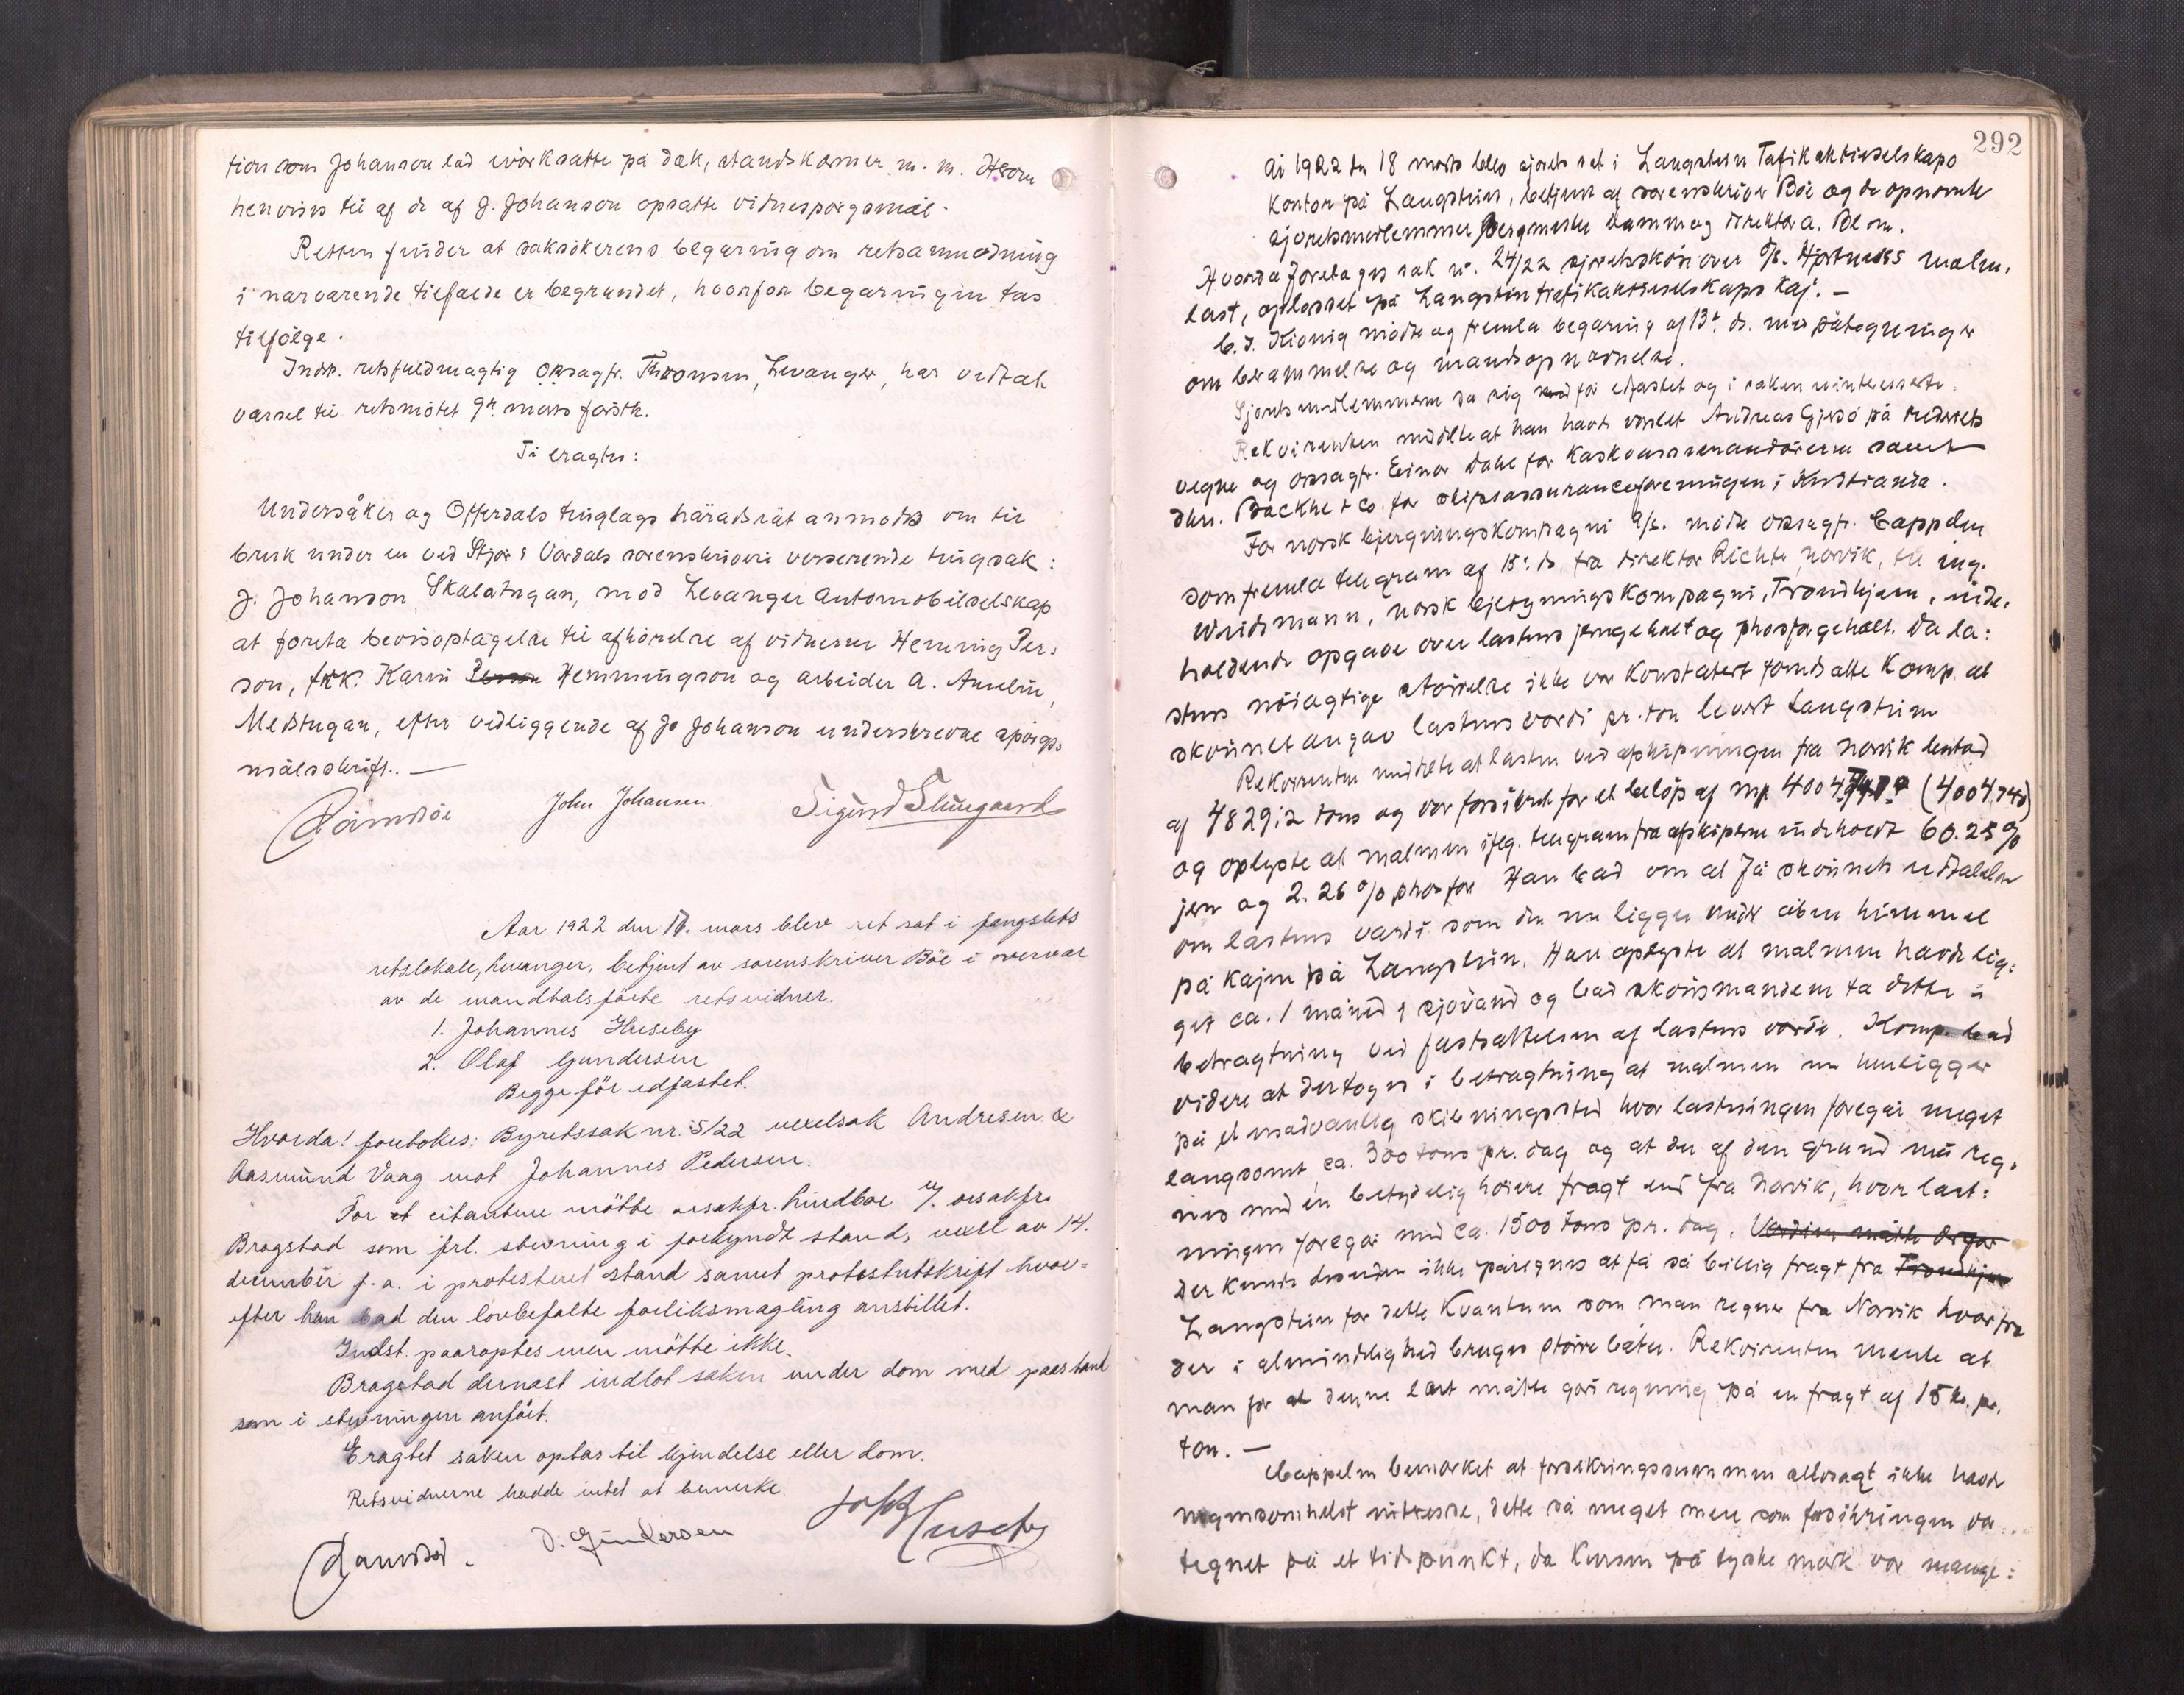 tion som Johanson lod iverksætte på dæk, standskærmer m. m. Herom
henvises til af de af J. Johanson opsatte vidnespörgsmål.
Retten finder at saksökerens begæring om retsanmodning
i nærværende tilfælde er begrundet, hvorfor begæringen tas
tilfölge.
Indst. retsfuldmægtig Orsagfr. Thomsen, Levanger, har vedtat
varsel til retsmötet 9de mars förstk.
Ti eragtes:
Undersåker og Offerdals tinglags häradsrät anmodes om til
bruk under en ved Stjör & Værdals sorenskriveri verserende tingsak:
J. Johanson, Skalstugan, mod Levanger Automobilselskap
at foreta bevisoptagelse til afhörelse af vidnerne Henning Pers-
son, frk. Karin Hemmingson og arbeider A. Amelin,
Medstugan, efter vedliggende af J. Johanson underskrevne spörgs-
målsskrift. —
John Johansen. Sigurd Slungaard
Aar 1922 den 17. mars blev ret sat i fængslets
retslokale, Levanger, betjent av sorenskriver Böe i overvær
av de mandtalsförte retsvidner.
1. Johannes Huseby
2. Olaf Gundersen
Begge för edfæstet.
Hvorda! foretokes: Byretssak nr. 5/22 vexelsak Andresen &
Aasmund Vaag mot Johannes Pedersen.
For citantene mötte orsakfr. Lindboe v/. orsakfr.
Bragstad som frl. stevning i forkyndt stand, vexel av 14.
december f. a. i protesteret stand samt protestutskrift hvor-
efter han bad den lovbefalte forliksmægling anstillet.
Indst. paaroptes men mötte ikke.
Bragstad dernæst indlot saken under dom med paastand
som i stevningen anfört.
Eragtet saken optas til kjendelse eller dom.
Retsvidnerne hadde intet at bemerke.
O. Gundersen Joh Huseby
292
År 1922 den 18 mars blev sjöret sat i Langstein Trafikaktieselskaps
kontor på Langstein, betjent af sorenskriver Böe og de opnævnte
sjöretsmedlemmer Bergmester Damm og direktör A. Blom.
Hvorda foretages sak nr. 24/22 sjöretsskjön over D/S. Hörtness malm-
last, oplosset på Langstein trafikaktieselskaps kaj. —
C. J. Kionig mödte og fremla begæring af 13de ds. med påtegninger
om berammelse og mandsopnævnelse.
Sjöretsmedlemmerne sa sig för edfæstet og i saken uinteresserte.
Rekvirenten meddelte at han havde varslet Andreas Gjersö på rederiets
vegne og orsagfr. Einar Dahl for kaskoassurandörerne samt
dhrr. Backke & Co. for skipsassuranceforeningen i Kristiania.
For norsk bjergningskompagni A/S. mödte orsagfr. Cappelen
som fremla telegram af 15de ds. fra direktör Richter, Narvik, til ing.
Weidemann, norsk bjergningskompagni, Trondhjem, inde-
holdende opgave over lastens jerngehalt og phosforgehalt. Da la-
stens nöiagtige störrelse ikke var konstatert forudsatte Komp. at
skjönnet angav lastens værdi pr. ton levert Langstein
Rekvirenten meddelte at lasten ved afskipningen fra Narvik bestod
af 4829,2 tons og var forsikret for et belöp af mk 4004740 (4004,740)
og oplyste at malmen iflg. telegram fra afskiperne indeholdt 60.25 %
jern og 2.26 % phosfor. Han bad om at få skjönnets uttalelse
om lastens værdi som den nu ligger under åben himmel
på kajen på Langstein. Han oplyste at malmen havde lig-
get ca. 1 måned i sjövand og bad skjönsmændene ta dette i
betragtning ved fastsættelsen af lastens værdi. Komp. bad
videre at der toges i betragtning at malmen nu henligger
på et usædvanlig skibningssted hvor lastningen foregår meget
langsomt ca. 300 tons pr. dag og at der af den grund må reg-
nes med en betydelig höiere fragt end fra Narvik, hvor last-
ningen foregår med ca. 1500 tons pr. dag. Værdien måtte derfor
der kunde desuden ikke påregnes at få så billig fragt fra Trondhjem
Langstein for dette kvantum som man regner fra Narvik hvorfra
der i almindelighed bruges större båter. Rekvirenten mente at
man for denne last måtte göre regning på en fragt af 15 kr. pr.
ton. —
Cappelen bemærket at forsikringssummen altsagt ikke havde
nogensomhelst interesse, dette så meget mere som forsikringen va..
tegnet på et tidspunkt, da kursen på tyske mark var mange-